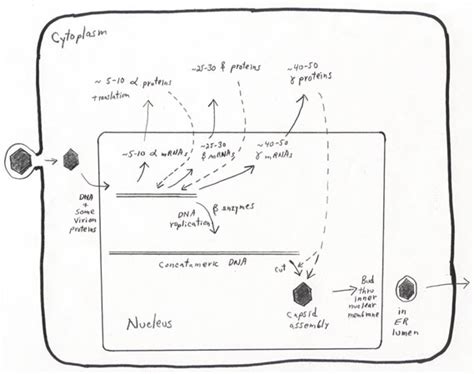 Cytoplasm
~ 5-10 α proteins
translation
~25-30 β proteins
~40-50
γ proteins
~5-10 α mRNAs
~25-30
β mRNAs
~40-50
γ mRNAs
DNA
+
some
virion
proteins
DNA
replication
β enzymes
Concatameric DNA
cut
Capsid
assembly
Bud
thru
inner
nuclear
membrane
in
ER
lumen
Nucleus